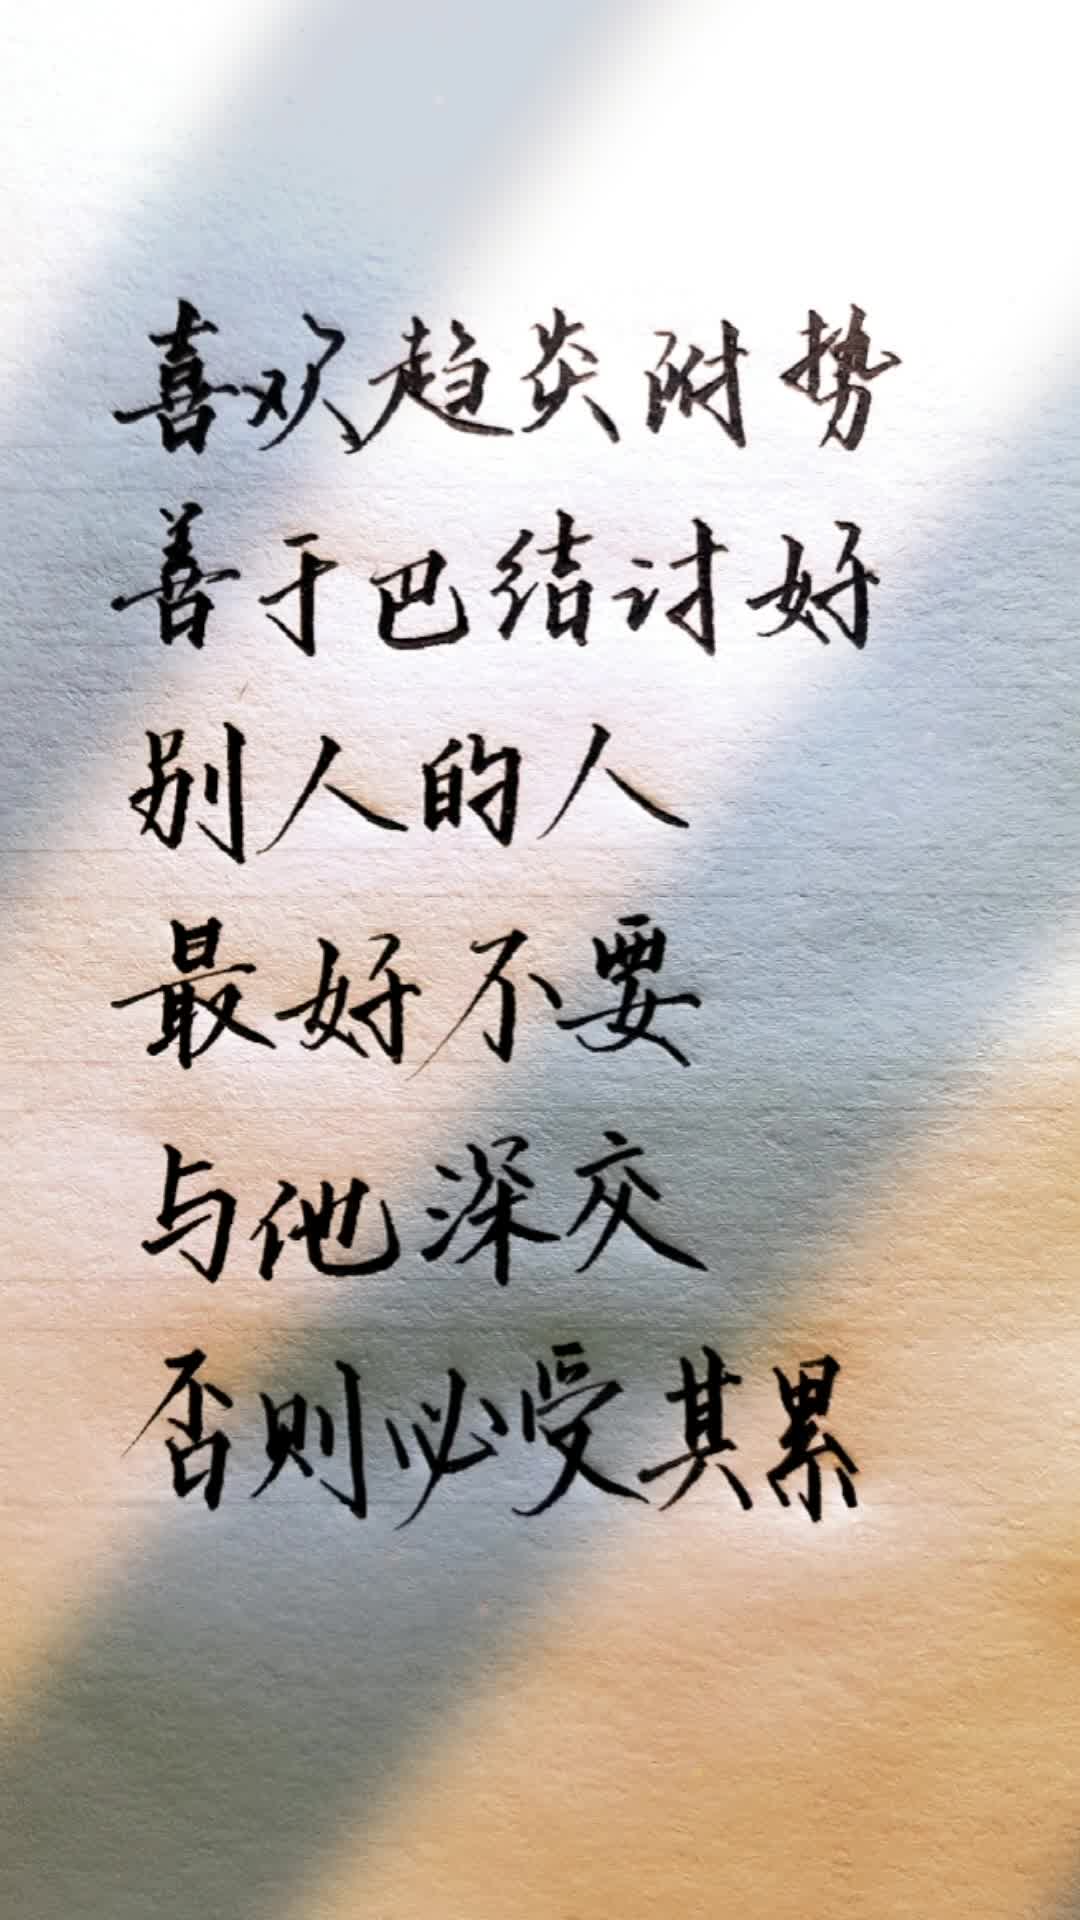 喜欢趋炎附势
善于巴结讨好
别人的人
最好不要
与他深交
否则必受其累